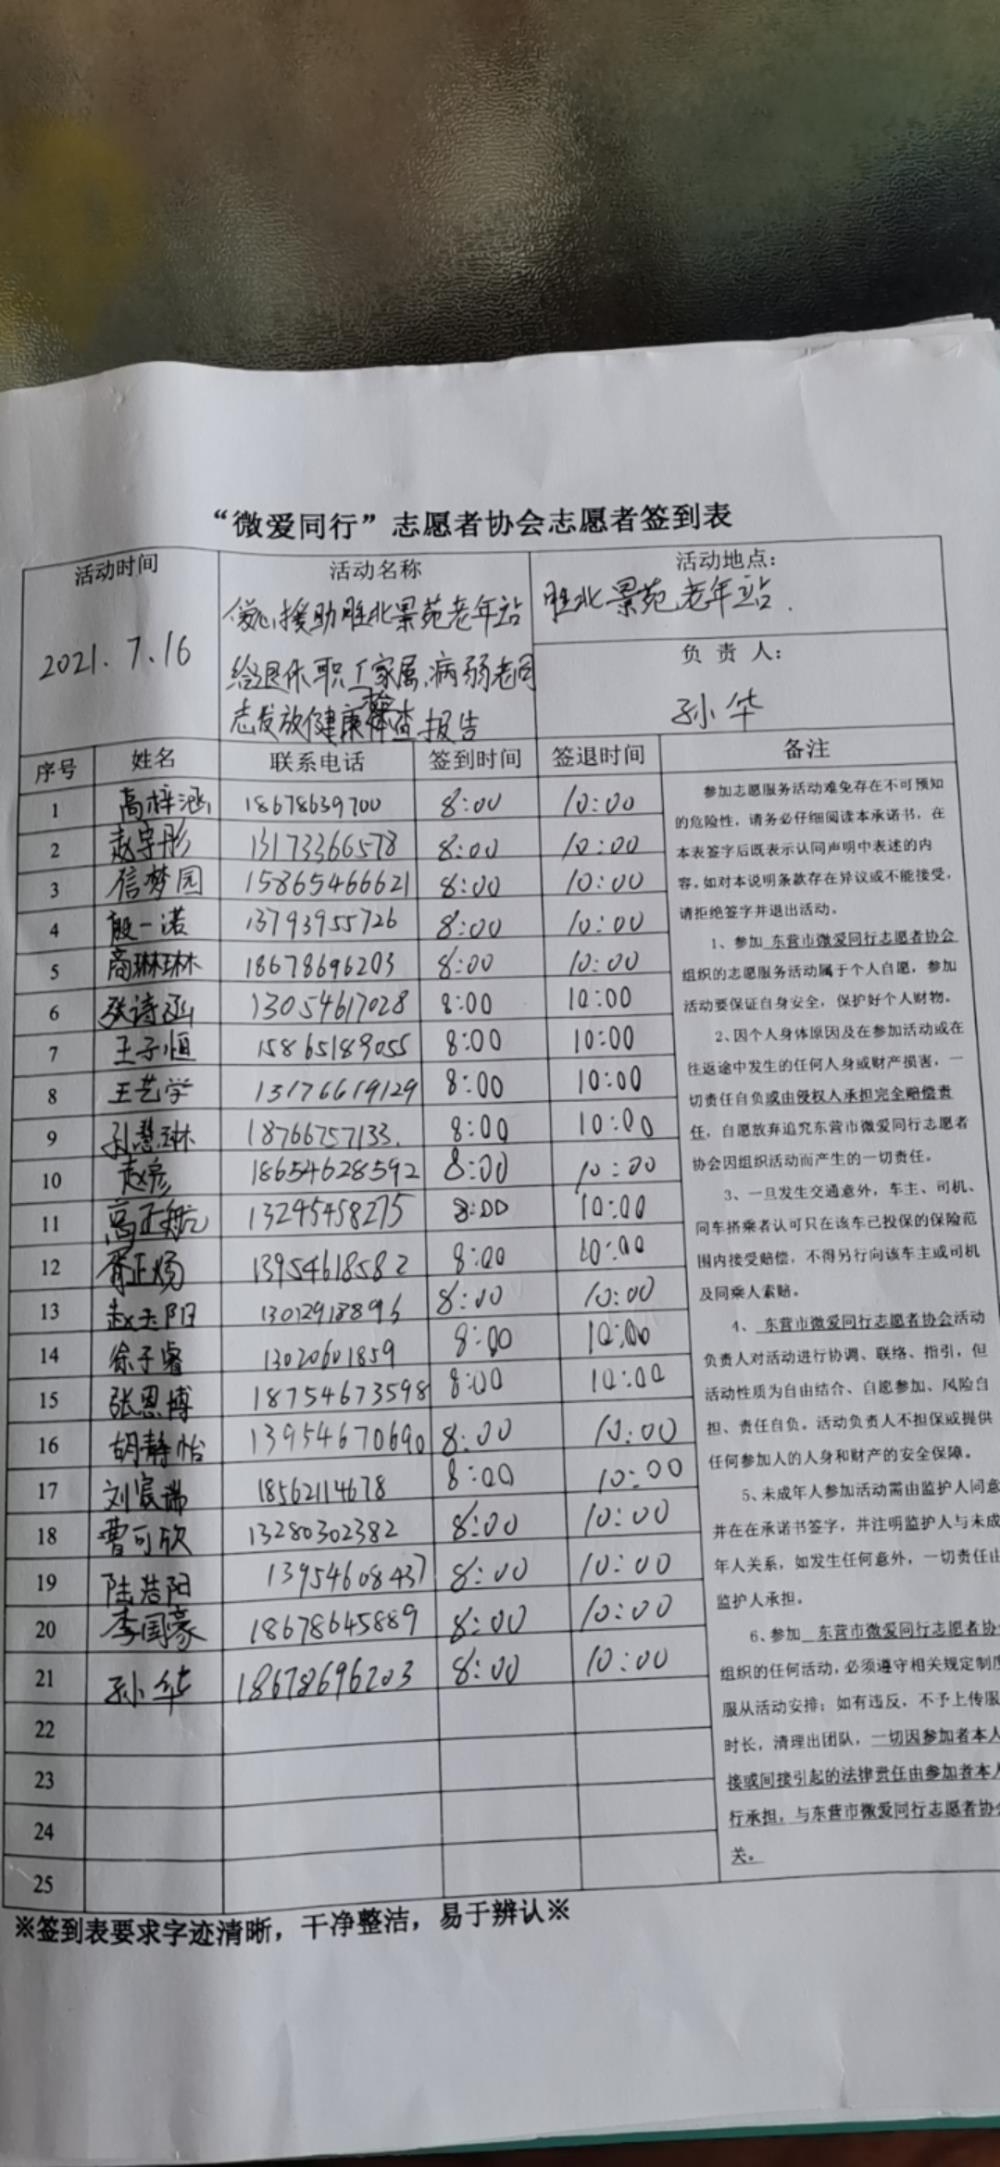 “微爱同行”志愿者协会志愿者签到表
活动时间 活动名称 活动地点：
2021.7.16
爱心援助胜北景苑老年站
给退休职工家属、病弱老同
志发放健康体检报告
胜北景苑老年站.
负 责 人：
孙华
序号 姓名 联系电话 签到时间 签退时间 备注
1 高梓涵 18678639700 8:00 10:00
2 赵宇彤 13173366578 8:00 10:00
3 信梦园 15865466621 8:00 10:00
4 殷一诺 13793955726 8:00 10:00
5 商琳琳 18678696203 8:00 10:00
6 张诗涵 13054617028 8:00 10:00
7 王子恒 15865189055 8:00 10:00
8 王艺学 13176619129 8:00 10:00
9 孙慧琳 18766757133. 8:00 10:00
10 赵彦 18654628592 8:00 10:00
11 高正航 13295458275 8:00 10:00
12 胥正炀 13954618582 8:00 10:00
13 赵玉阳 13012918896 8:00 10:00
14 徐子睿 13020601859 8:00 10:00
15 张恩博 18754673598 8:00 10:00
16 胡静怡 13954670690 8:00 10:00
17 刘宸瑞 18562114678 8:00 10:00
18 曹可欣 13280302382 8:00 10:00
19 陆浩阳 13954608437 8:00 10:00
20 李国豪 18678645889 8:00 10:00
21 孙华 18678696203 8:00 10:00
22
23
24
25
参加志愿服务活动难免存在不可预知
的危险性，请务必仔细阅读本承诺书，在
本表签字后既表示认同声明中表述的内
容。如对本说明条款存在异议或不能接受，
请拒绝签字并退出活动。
1、参加 东营市微爱同行志愿者协会
组织的志愿服务活动属于个人自愿，参加
活动要保证自身安全，保护好个人财物。
2、因个人身体原因及在参加活动或在
往返途中发生的任何人身或财产损害，一
切责任自负或由侵权人承担完全赔偿责
任，自愿放弃追究东营市微爱同行志愿者
协会因组织活动而产生的一切责任。
3、一旦发生交通意外，车主、司机、
同车搭乘者认可只在该车已投保的保险范
围内接受赔偿，不得另行向该车主或司机
及同乘人索赔。
4、 东营市微爱同行志愿者协会活动
负责人对活动进行协调、联络、指引，但
活动性质为自由结合、自愿参加、风险自
担、责任自负。活动负责人不担保或提供
任何参加人的人身和财产的安全保障。
5、未成年人参加活动需由监护人同意
并在在承诺书签字，并注明监护人与未成
年人关系，如发生任何意外，一切责任由
监护人承担。
6、参加 东营市微爱同行志愿者协
组织的任何活动，必须遵守相关规定制度
服从活动安排；如有违反，不予上传服
时长，清理出团队，一切因参加者本人
接或间接引起的法律责任由参加者本人
行承担，与东营市微爱同行志愿者协会
关。
※签到表要求字迹清晰，干净整洁，易于辨认※